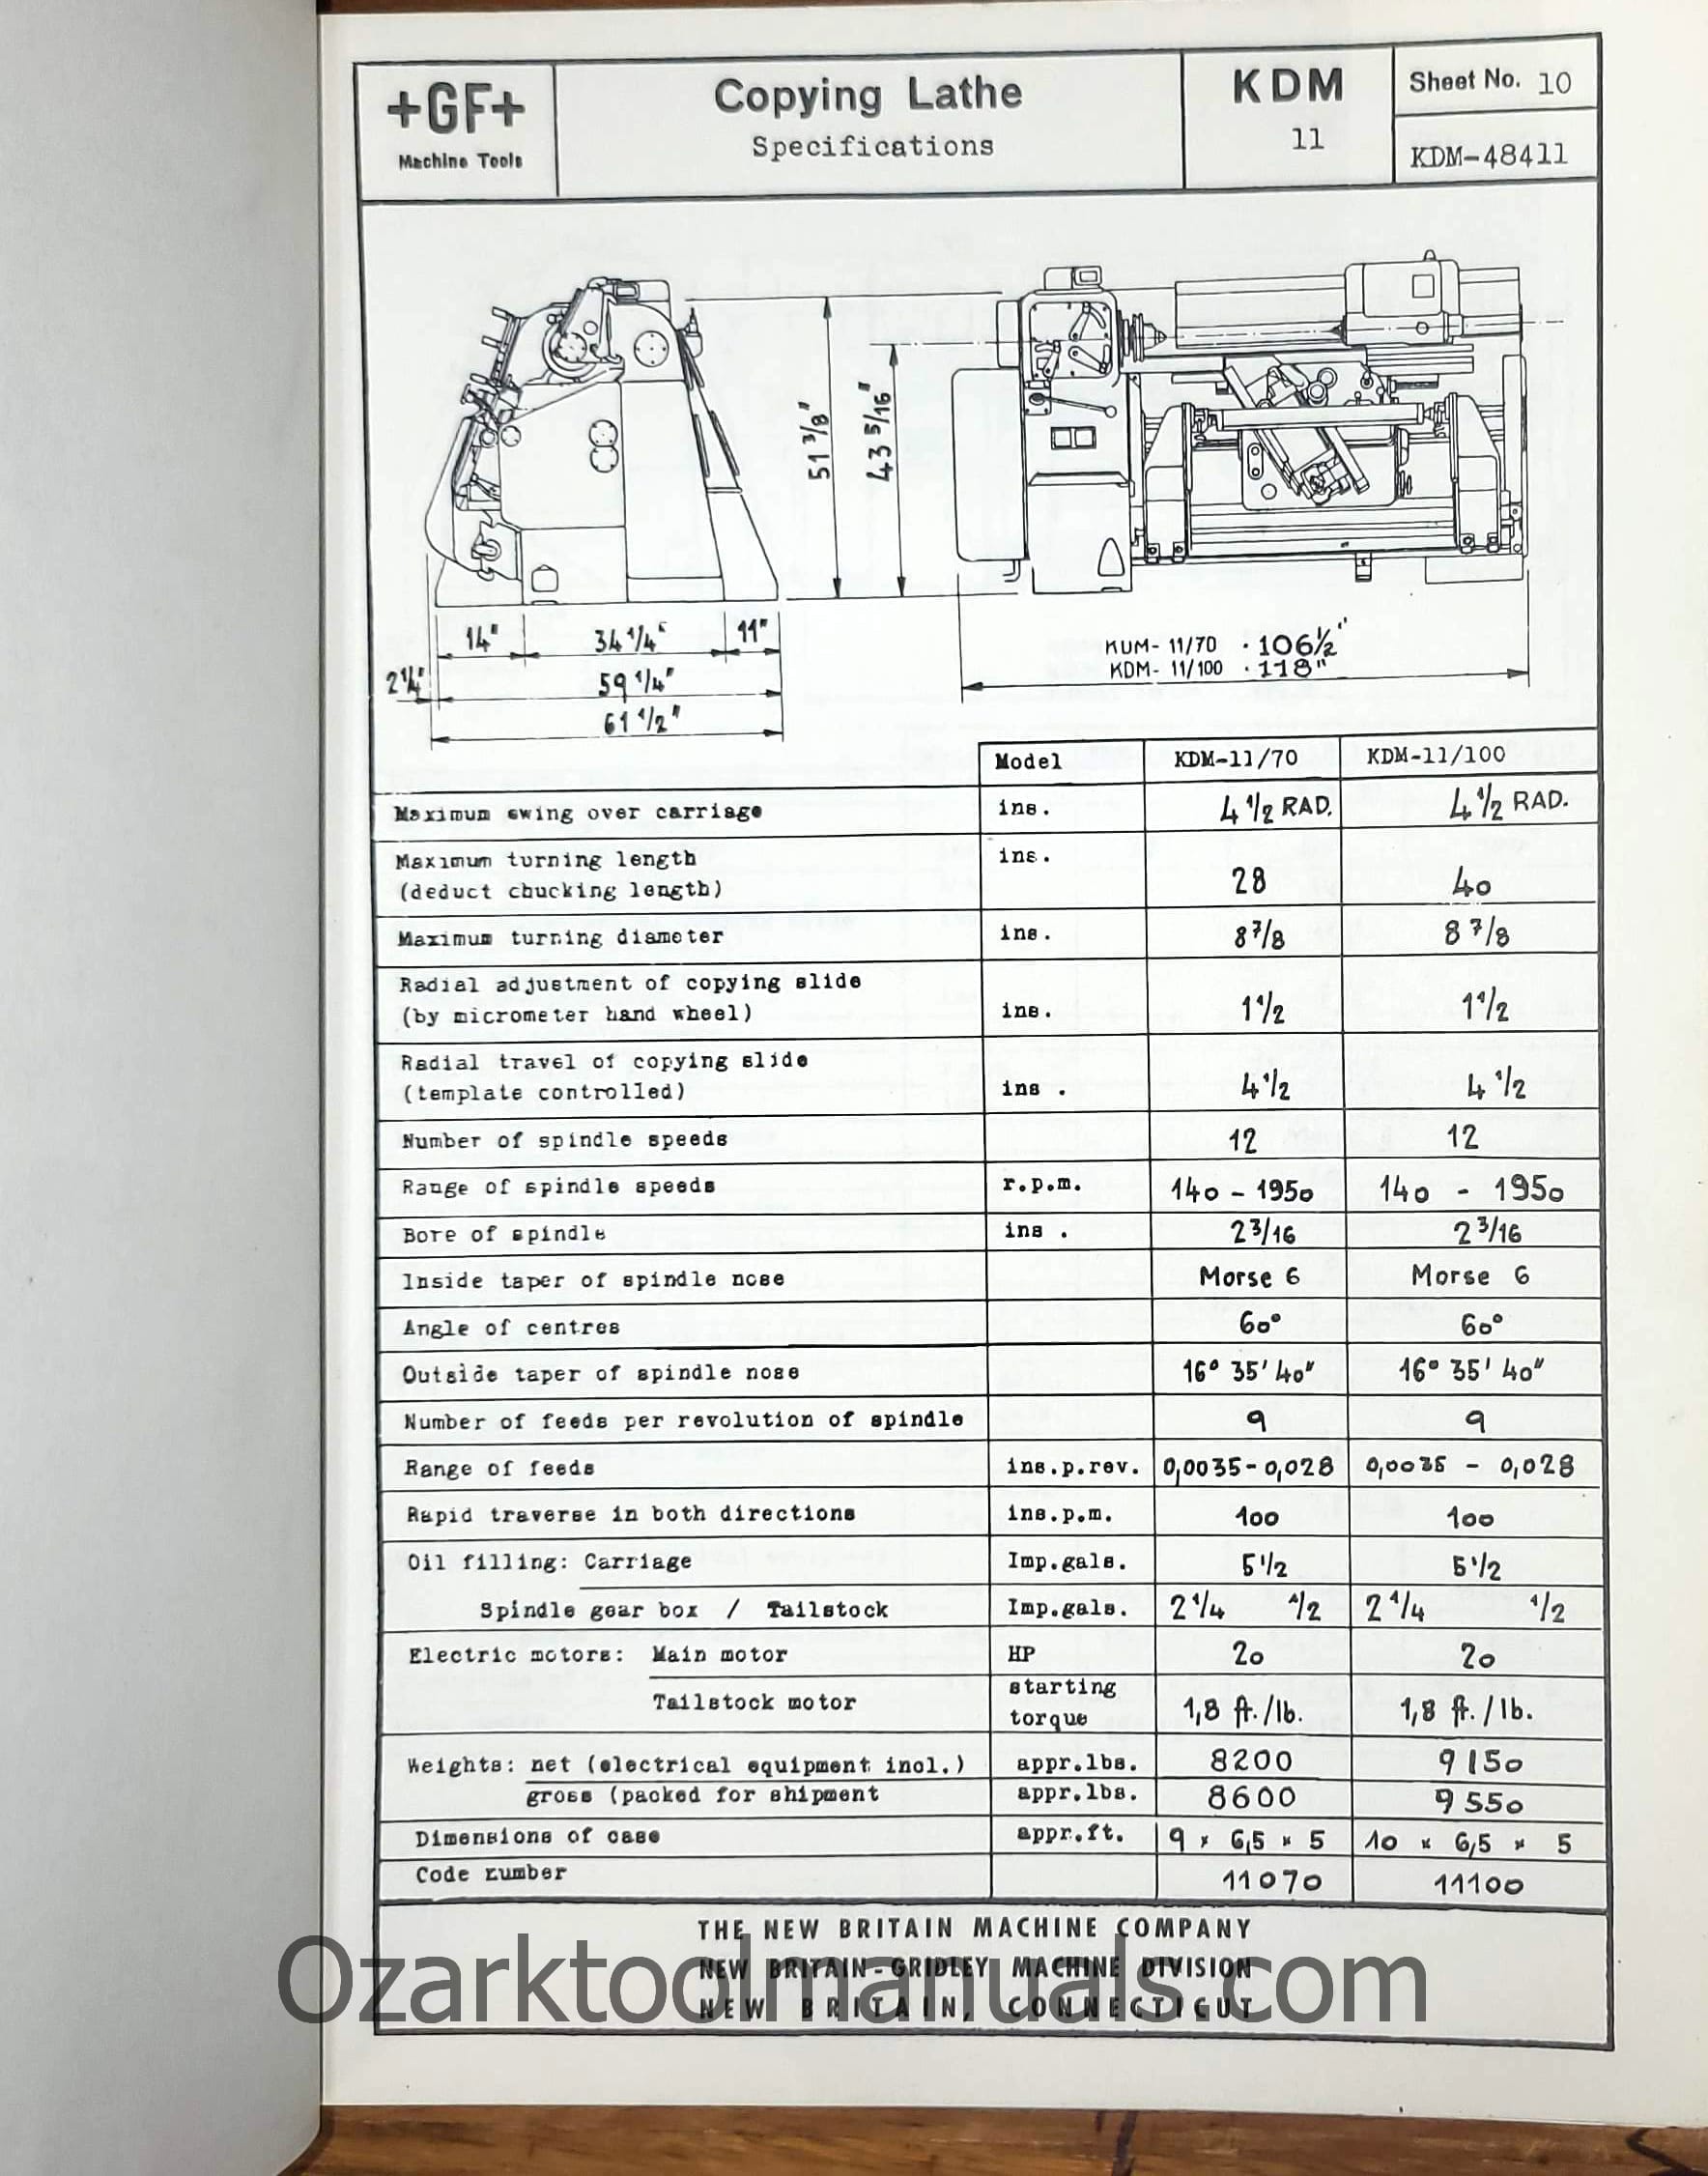 +GF+
Machine Tools
Copying Lathe
Specifications
KDM
11
Sheet No. 10
KDM-48411
51 3/8"
43 5/16"
14"
34 1/4"
11"
2 1/4"
59 1/4"
61 1/2"
KUM- 11/70 · 106 1/2"
KDM- 11/100 · 118"
Model KDM-11/70 KDM-11/100
Maximum swing over carriage ins. 4 1/2 RAD. 4 1/2 RAD.
Maximum turning length ins.
(deduct chucking length) 28 40
Maximum turning diameter ins. 8 7/8 8 7/8
Radial adjustment of copying slide
(by micrometer hand wheel) ins. 1 1/2 1 1/2
Radial travel of copying slide
(template controlled) ins . 4 1/2 4 1/2
Number of spindle speeds 12 12
Range of spindle speeds r.p.m. 140 - 1950 140 - 1950
Bore of spindle ins . 2 3/16 2 3/16
Inside taper of spindle nose Morse 6 Morse 6
Angle of centres 60° 60°
Outside taper of spindle nose 16° 35' 40" 16° 35' 40"
Number of feeds per revolution of spindle 9 9
Range of feeds ins.p.rev. 0,0035-0,028 0,0035 - 0,028
Rapid traverse in both directions ins.p.m. 100 100
Oil filling: Carriage Imp.gals. 5 1/2 5 1/2
Spindle gear box / Tailstock Imp.gals. 2 1/4 1/2 2 1/4 1/2
Electric motors: Main motor HP 20 20
Tailstock motor starting torque 1,8 ft./lb. 1,8 ft./lb.
Weights: net (electrical equipment incl.) appr.lbs. 8200 9150
gross (packed for shipment appr.lbs. 8600 9550
Dimensions of case appr.ft. 9 x 6,5 x 5 10 x 6,5 x 5
Code number 11070 11100
THE NEW BRITAIN MACHINE COMPANY
NEW BRITAIN-GRIDLEY MACHINE DIVISION
NEW BRITAIN, CONNECTICUT
Ozarktoolmanuals.com